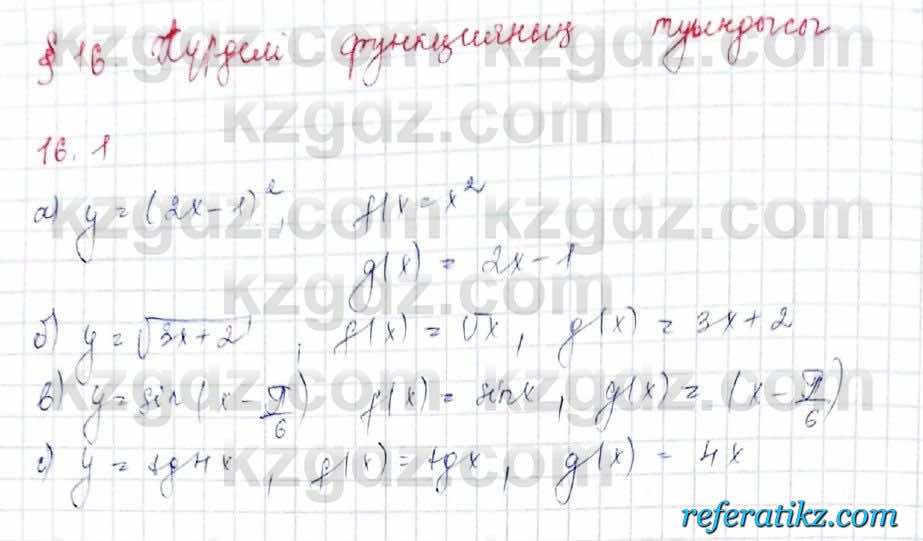 § 16. Күрделі функцияның туындысы
16.1
а) y = (2x-1)², f(x = x²
g(x) = 2x-1
б) y = √3x+2, f(x) = √x, g(x) = 3x+2
в) y = sin(x - π/6) f(x) = sinx, g(x) = (x - π/6)
с) y = tg4x, f(x) = tgx, g(x) = 4x
kzgdz.com
kzgdz.com
kzgdz.com
kzgdz.com
kzgdz.com
kzgdz.com
referatikz.com